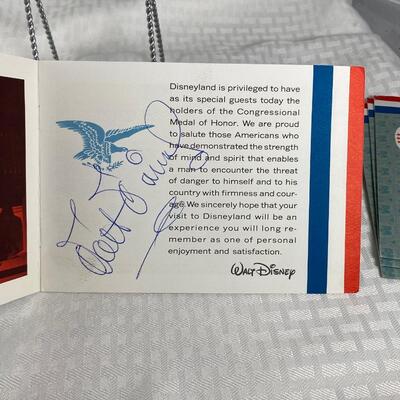 Disneyland is privileged to have
as its special guests today the
holders of the Congressional
Medal of Honor. We are proud
to salute those Americans who
have demonstrated the strength
of mind and spirit that enables
a man to encounter the threat
of danger to himself and to his
country with firmness and cour-
age. We sincerely hope that your
visit to Disneyland will be an
experience you will long re-
member as one of personal
enjoyment and satisfaction.
WALT DISNEY